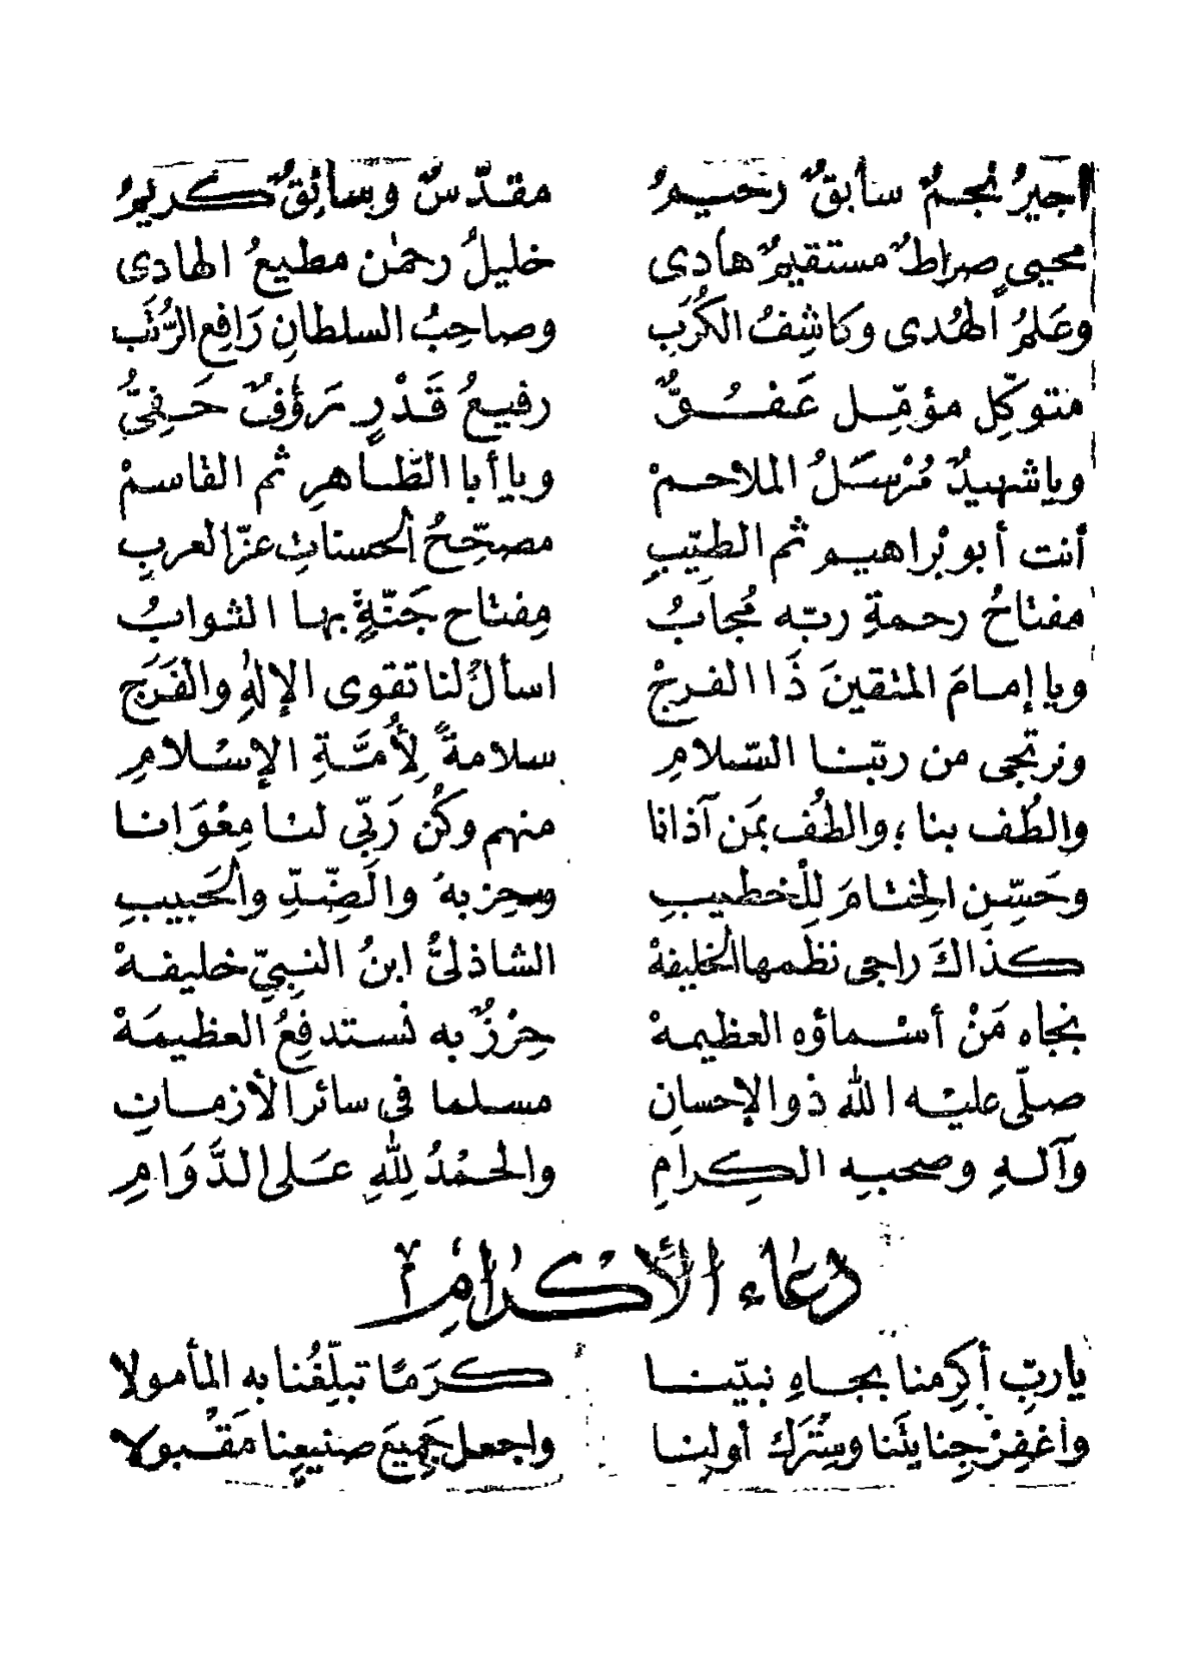 اجيرُ نجمٌ سابقٌ رحيمُ مقدّسٌ وسائِقٌ كريمُ
محيي صراطٌ مستقيمٌ هادى خليلُ رحمٰن مطيعُ الهادى
وعَلمُ الهُدى وكاشِفُ الكُرَبِ وصاحِبُ السلطانِ رَافِع الرُّتَب
متوكّل مؤمّل عَفُوٌّ رفيعُ قَدْرٍ رَؤُفٌ حَفِىُّ
وياشهيدٌ مُرْسَلُ الملاحمْ ويا أبا الطّاهرِ ثم القاسمْ
أنت أبو بْراهيم ثم الطيّبِ مصحّحُ الحسناتِ عزّ العربِ
مفتاحُ رحمةِ ربّه مُجابُ مِفتاح جَنّةٍ بها الثوابُ
ويا إمامَ المتقينَ ذَا الفرجْ اسألْ لنا تقوى الإلٰهِ والفَرَجْ
ونرتجى من ربّنا السّلامِ سلامةً لِأُمَّةِ الإسْلامِ
والطُف بنا ؛ والطُف بمَن آذانا منهم وكُن رَبّى لنا مِعْوَانا
وحَسِّنِ الخِتامَ لِلْخطيبِ وحِزبهُ والضِّدِّ والحَبيبِ
كذَاكَ راجى نظمها الخليفهْ الشاذلىُّ ابنُ النبِىّ خليفهْ
بجاه مَنْ أسْماؤه العظيمهْ حِرْزٌ به نَستدفِعُ العظيمَهْ
صلّى عليْه الله ذو الإحسانِ مسلما فى سائر الأزمانِ
وآلهِ وصحبهِ الكِرامِ والحمْدُ لِلّٰهِ عَلى الدَّوَامِ
دعاء الأكرام
ياربِّ أكرِمنا بجاهِ نبيّنا كرَمًا تبلّغُنا به المأمولا
واغفِرْ جِنايتَنا وسِتْرَكَ أولِنا واجعل جَميعَ صنيعِنا مَقْبولا